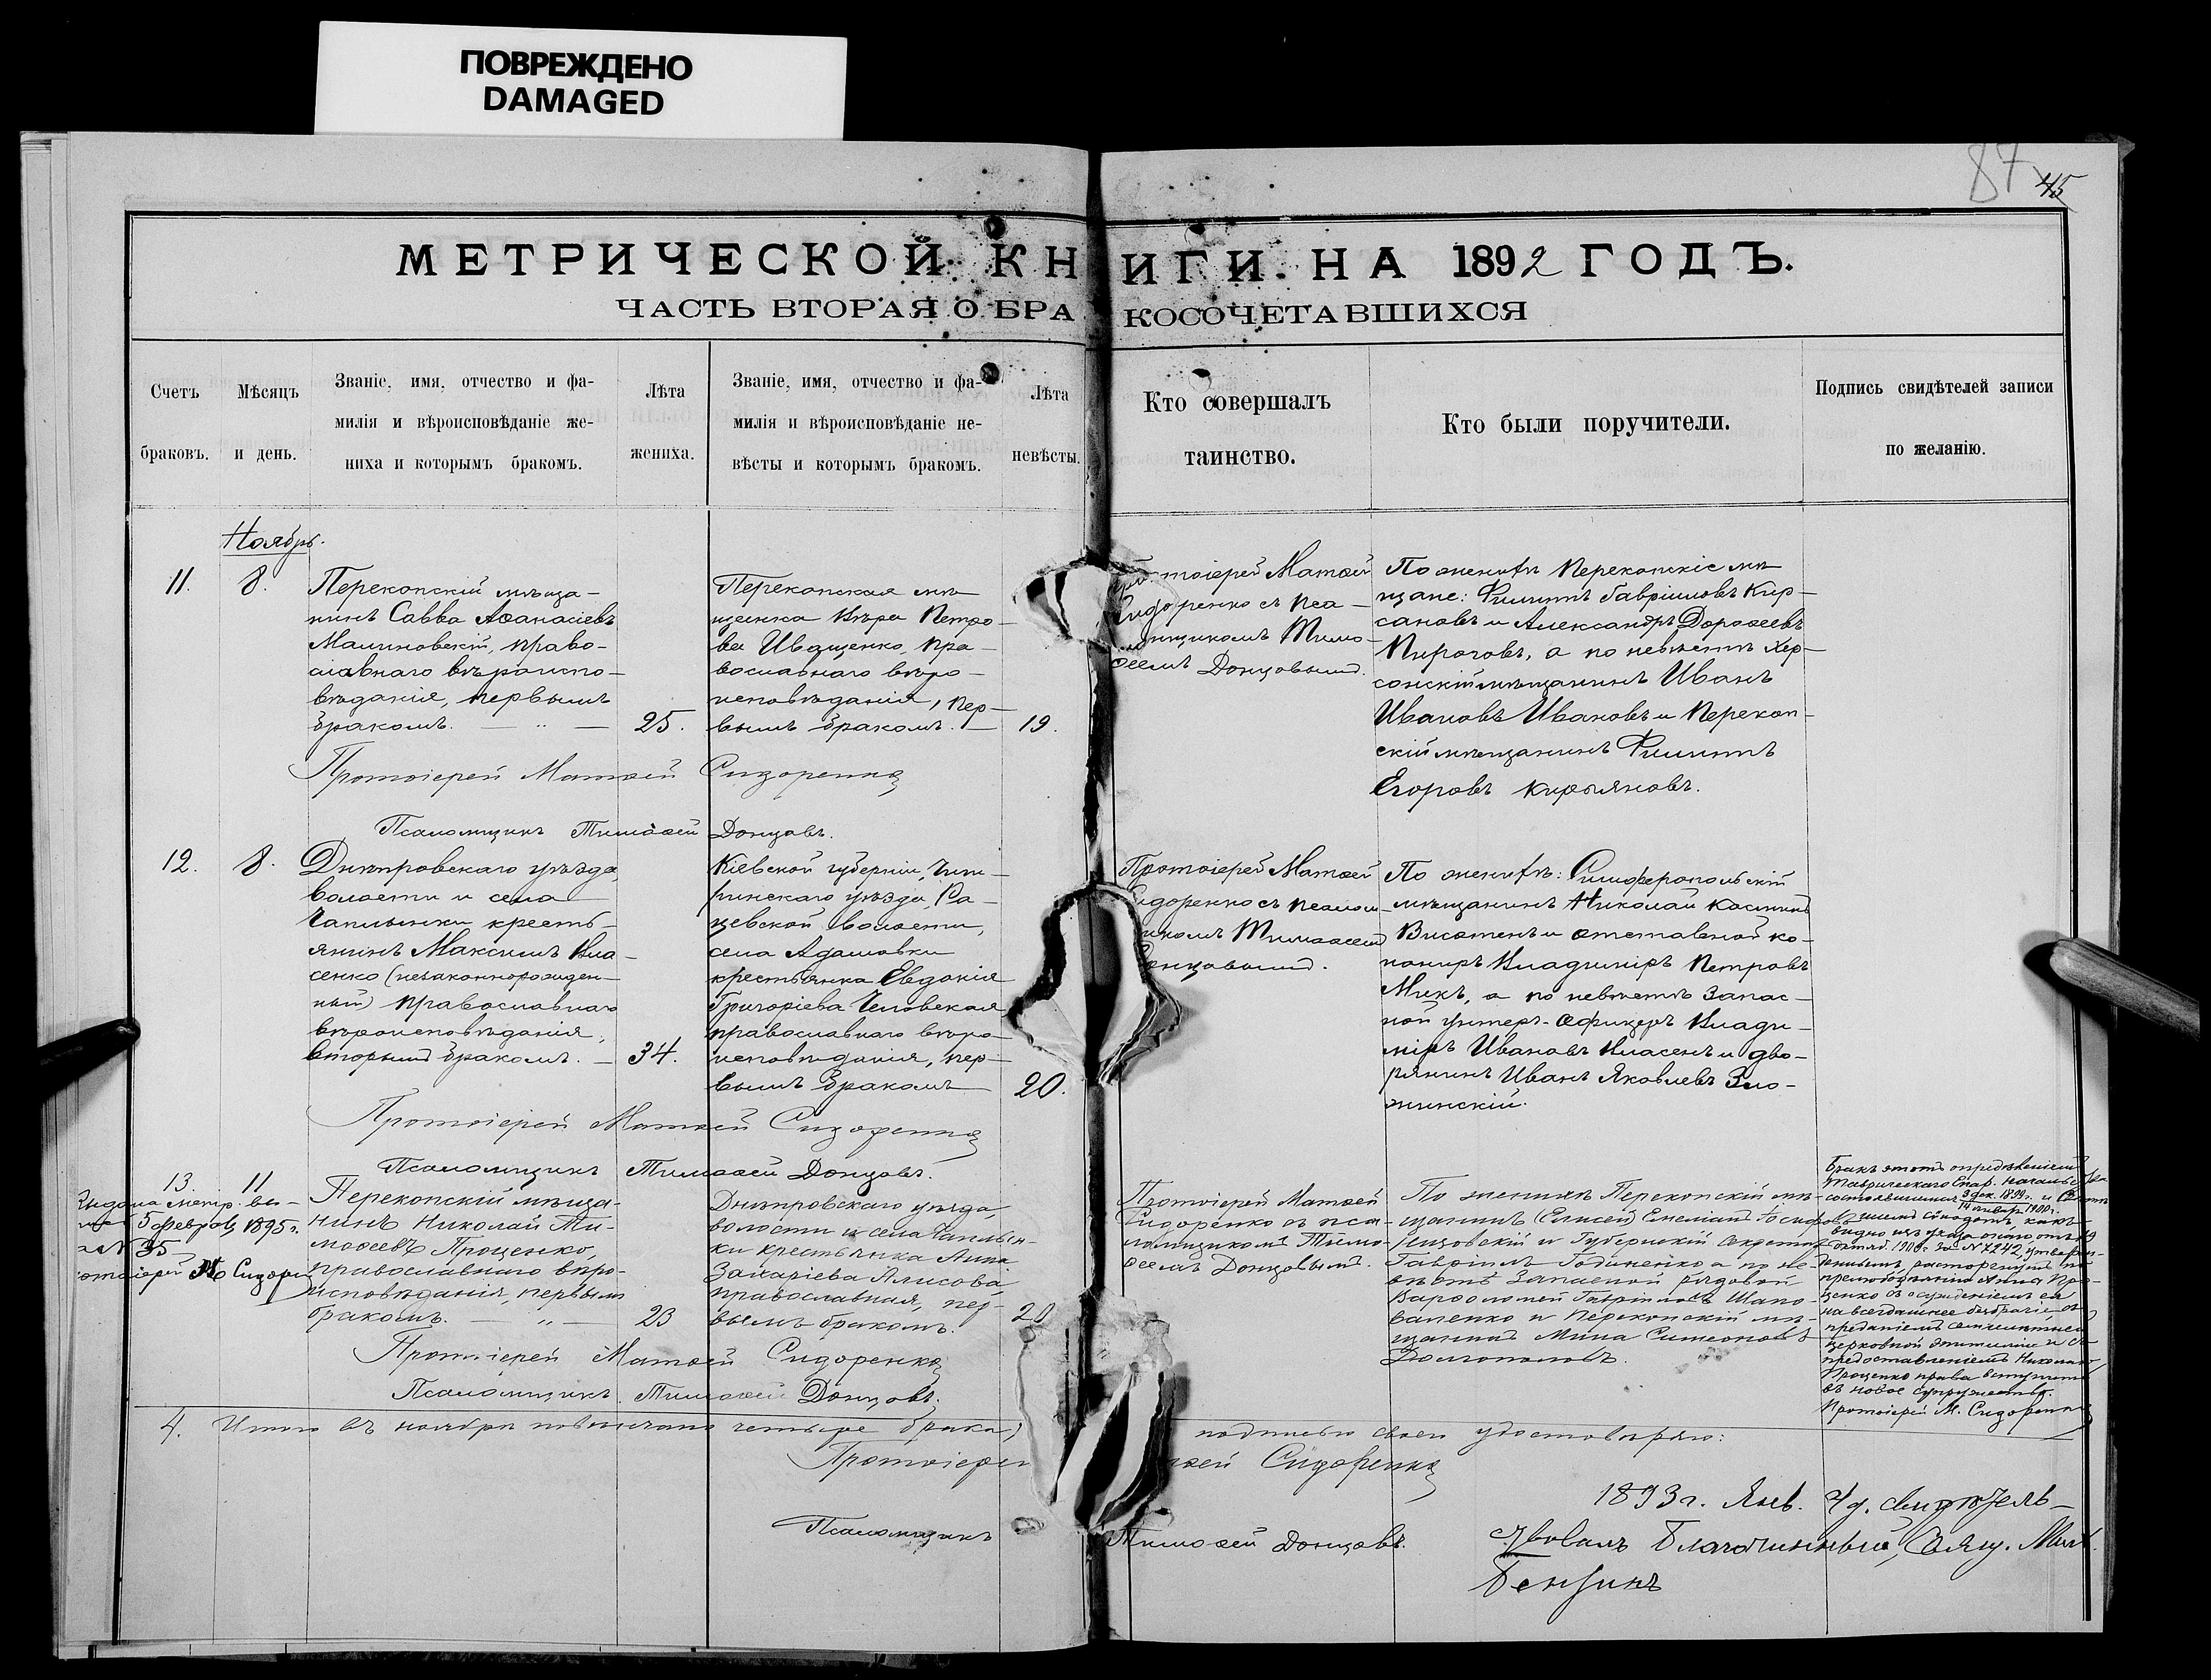 ПОВРЕЖДЕНО
DAMAGED
87
45
МЕТРИЧЕСКОЙ КНИГИ НА 1892 ГОДЪ.
ЧАСТЬ ВТОРАЯ О БРАКОСОЧЕТАВШИХСЯ
Счетъ
браковъ.
Мѣсяцъ
и день.
Званіе, имя, отчество и фа-
милія и вѣроисповѣданіе же-
ниха и которымъ бракомъ.
Лѣта
жениха.
Званіе, имя, отчество и фа-
милія и вѣроисповѣданіе не-
вѣсты и которымъ бракомъ.
Лѣта
невѣсты.
Кто совершалъ
таинство.
Кто были поручители.
Подпись свидѣтелей записи
по желанію.
Ноябрь.
11.
8.
Перекопскій мѣща-
нинъ Савва Аѳанасіевъ
Малиновскій, право-
славнаго вѣроиспо-
вѣданія, первымъ
бракомъ. — " —
25.
Перекопская мѣ-
щанка Вѣра Петро-
ва Иващенко, пра-
вославнаго вѣро-
исповѣданія, пер-
вымъ бракомъ. —
19.
Протоіерей Матѳей
Сидоренко съ пса-
ломщикомъ Тимо-
ѳеемъ Донцовымъ.
По женихѣ Перекопскіе мѣ-
щане: Филиппъ Гавріиловъ Кир-
сановъ и Александръ Дороѳеевъ
Пироговъ, а по невѣстѣ Хер-
сонскій мѣщанинъ Иванъ
Ивановъ Ивановъ и Перекоп-
скій мѣщанинъ Филиппъ
Егоровъ Кирьяновъ.
Протоіерей Матѳей Сидоренко
Псаломщикъ Тимоѳей Донцовъ.
12.
8.
Днѣпровскаго уѣзда,
волости и села
Чаплынки кресть-
янинъ Максимъ Вла-
сенко (незаконнорожден-
ный) православнаго
вѣроисповѣданія,
вторымъ бракомъ. —
34.
Кіевской губерніи, Чиги-
ринскаго уѣзда, Са-
села Адамовки
крестьянка Евдокія
Григоріева
православнаго вѣро-
исповѣданія, пер-
вымъ бракомъ
20.
Протоіерей Матѳей
Сидоренко съ псалом-
щикомъ Тимоѳеемъ
Донцовымъ.
По женихѣ: Симферопольскій
мѣщанинъ Николай
и отставной ко-
Владиміръ Петровъ
а по невѣстѣ Запас-
ной унтеръ-офицеръ Влади-
міръ Ивановъ и дво-
рянинъ Иванъ Яковлевъ
Протоіерей Матѳей Сидоренко
Псаломщикъ Тимоѳей Донцовъ.
13.
11
5 февраля 1895 г.
№ 35
М Сидоренко
Перекопскій мѣща-
нинъ Николай Ти-
моѳеевъ Проценко,
православнаго вѣро-
исповѣданія, первымъ
бракомъ. — " —
23
Днѣпровскаго уѣзда,
волости и села Чаплын-
ки крестьянка Анна
Захаріева Алисова,
православная, пер-
вымъ бракомъ.
20
Протоіерей Матѳей
Сидоренко съ пса-
ломщикомъ Тимо-
ѳеемъ Донцовымъ.
По женихѣ Перекопскій мѣ-
щанинъ (Елисей) Емеліанъ
и Губернскій Секретарь
Гавріилъ Годиненко а по не-
вѣстѣ Запасной рядовой
Варѳоломей Гавріиловъ Шапо-
валенко и Перекопскій мѣ-
щанинъ Мина Симеоновъ
Долгополовъ.
Бракъ этотъ опредѣленіемъ
Таврическаго Епар. Начальства
состоявшимся 3 дек. 1899 г. и
14 января 1900 г.
1900 г. за № 7242,
расторгнутъ по
прелюбодѣянію Анны Про-
ценко съ осужденіемъ ея
на всегдашнее безбрачіе съ
преданіемъ семилѣтней
церковной эпитиміи и съ
предоставленіемъ Николаю
Проценко права вступить
въ новое супружество.
Протоіерей М. Сидоренко
Протоіерей Матѳей Сидоренко
Псаломщикъ Тимоѳей Донцовъ.
4. Итого въ ноябрѣ повѣнчано четыре брака, подписью своею удостовѣряю:
Протоіерей Матѳей Сидоренко
Псаломщикъ Тимоѳей Донцовъ.
1893 г. Янв. 4 д. свидѣтель-
ствовалъ Благочинный, Свящ. Мих.